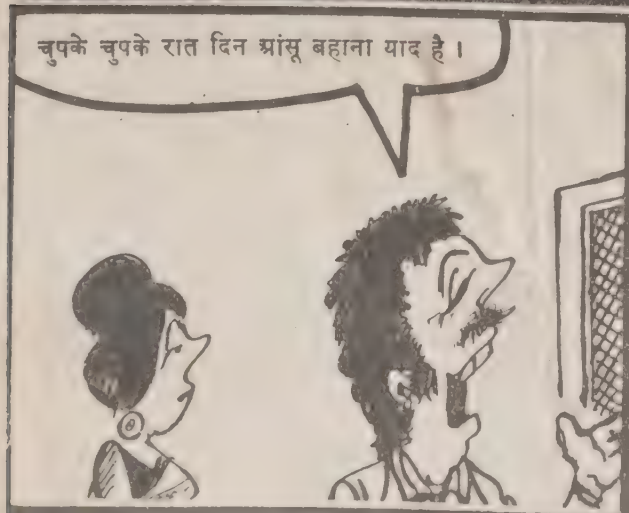 चुपके चुपके रात दिन आंसू बहाना याद है ।